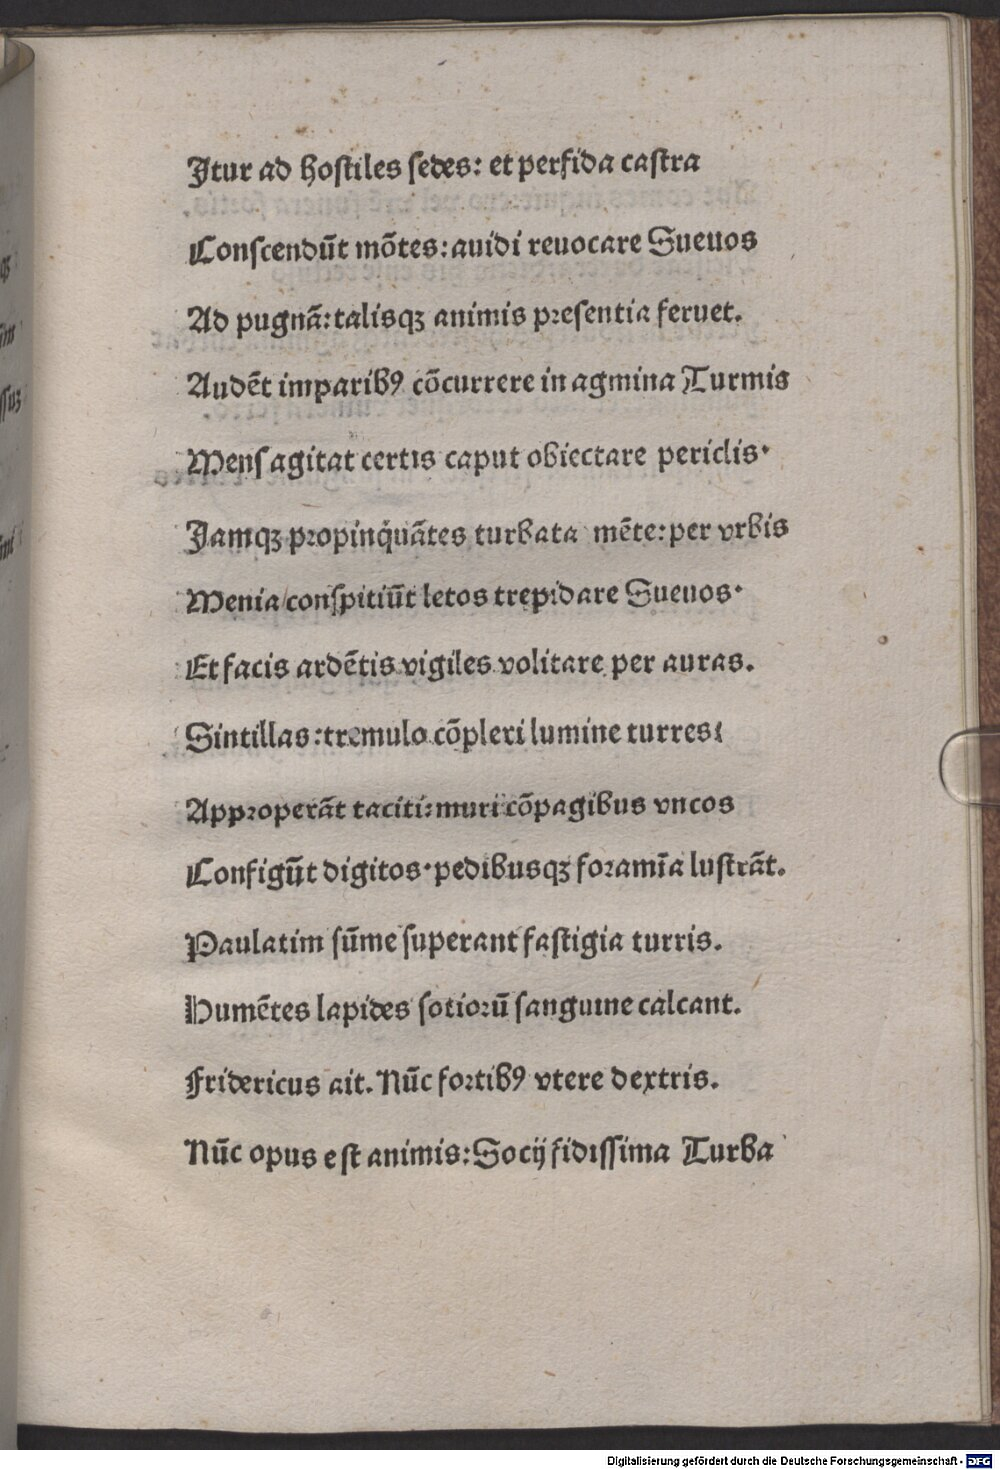 Itur ad hostiles sedes: et perfida castra
Conscendūt mōtes: auidi reuocare Sueuos
Ad pugnā: talisqꝫ animis presentia feruet.
Audēt imparibꝰ cōcurrere in agmina Turmis
Mens agitat certis caput obiectare periclis·
Iamqꝫ propinq̇uātes turbata mēte: per vrbis
Menia/conspitiūt letos trepidare Sueuos·
Et facis ardētis vigiles volitare per auras.
Sintillas: tremulo cōpleri lumine turres:
Approperāt taciti: muri cōpagibus vncos
Configūt digitos· pedibusqꝫ foramīa lustrāt.
Paulatim sūme superant fastigia turris.
Humētes lapides sotiorū sanguine calcant.
Fridericus ait. Nūc fortibꝰ vtere dextris.
Nūc opus est animis: Socij fidissima Turba
Digitalisierung gefördert durch die Deutsche Forschungsgemeinschaft - DFG